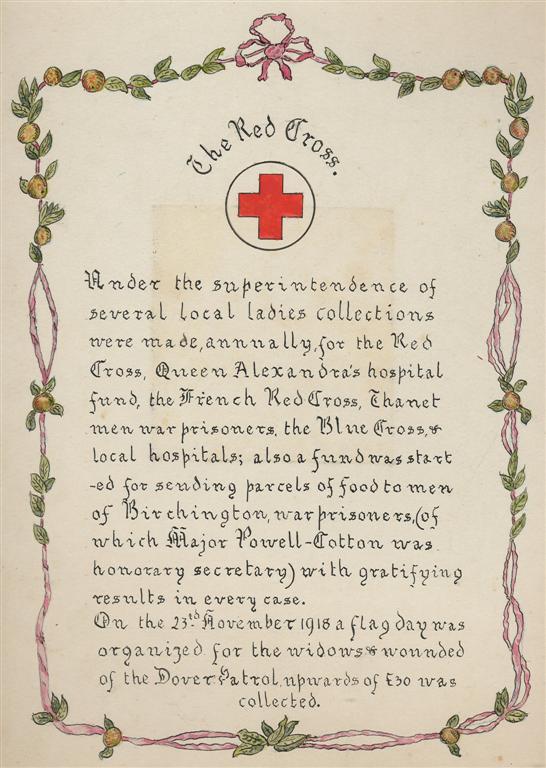 The Red Cross.
Under the superintendence of
several local ladies collections
were made, annually, for the Red
Cross, Queen Alexandra's hospital
fund, the French Red Cross, Thanet
men war prisoners, the Blue Cross, &
local hospitals; also a fund was start
-ed for sending parcels of food to men
of Birchington, war prisoners, (of
which Major Powell-Cotton was
honorary secretary) with gratifying
results in every case.
On the 23rd November 1918 a flag day was
organized for the widows & wounded
of the Dover Patrol, upwards of £30 was
collected.